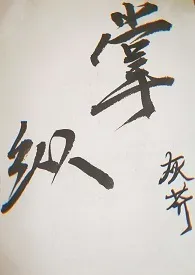 掌
纵
灰芥